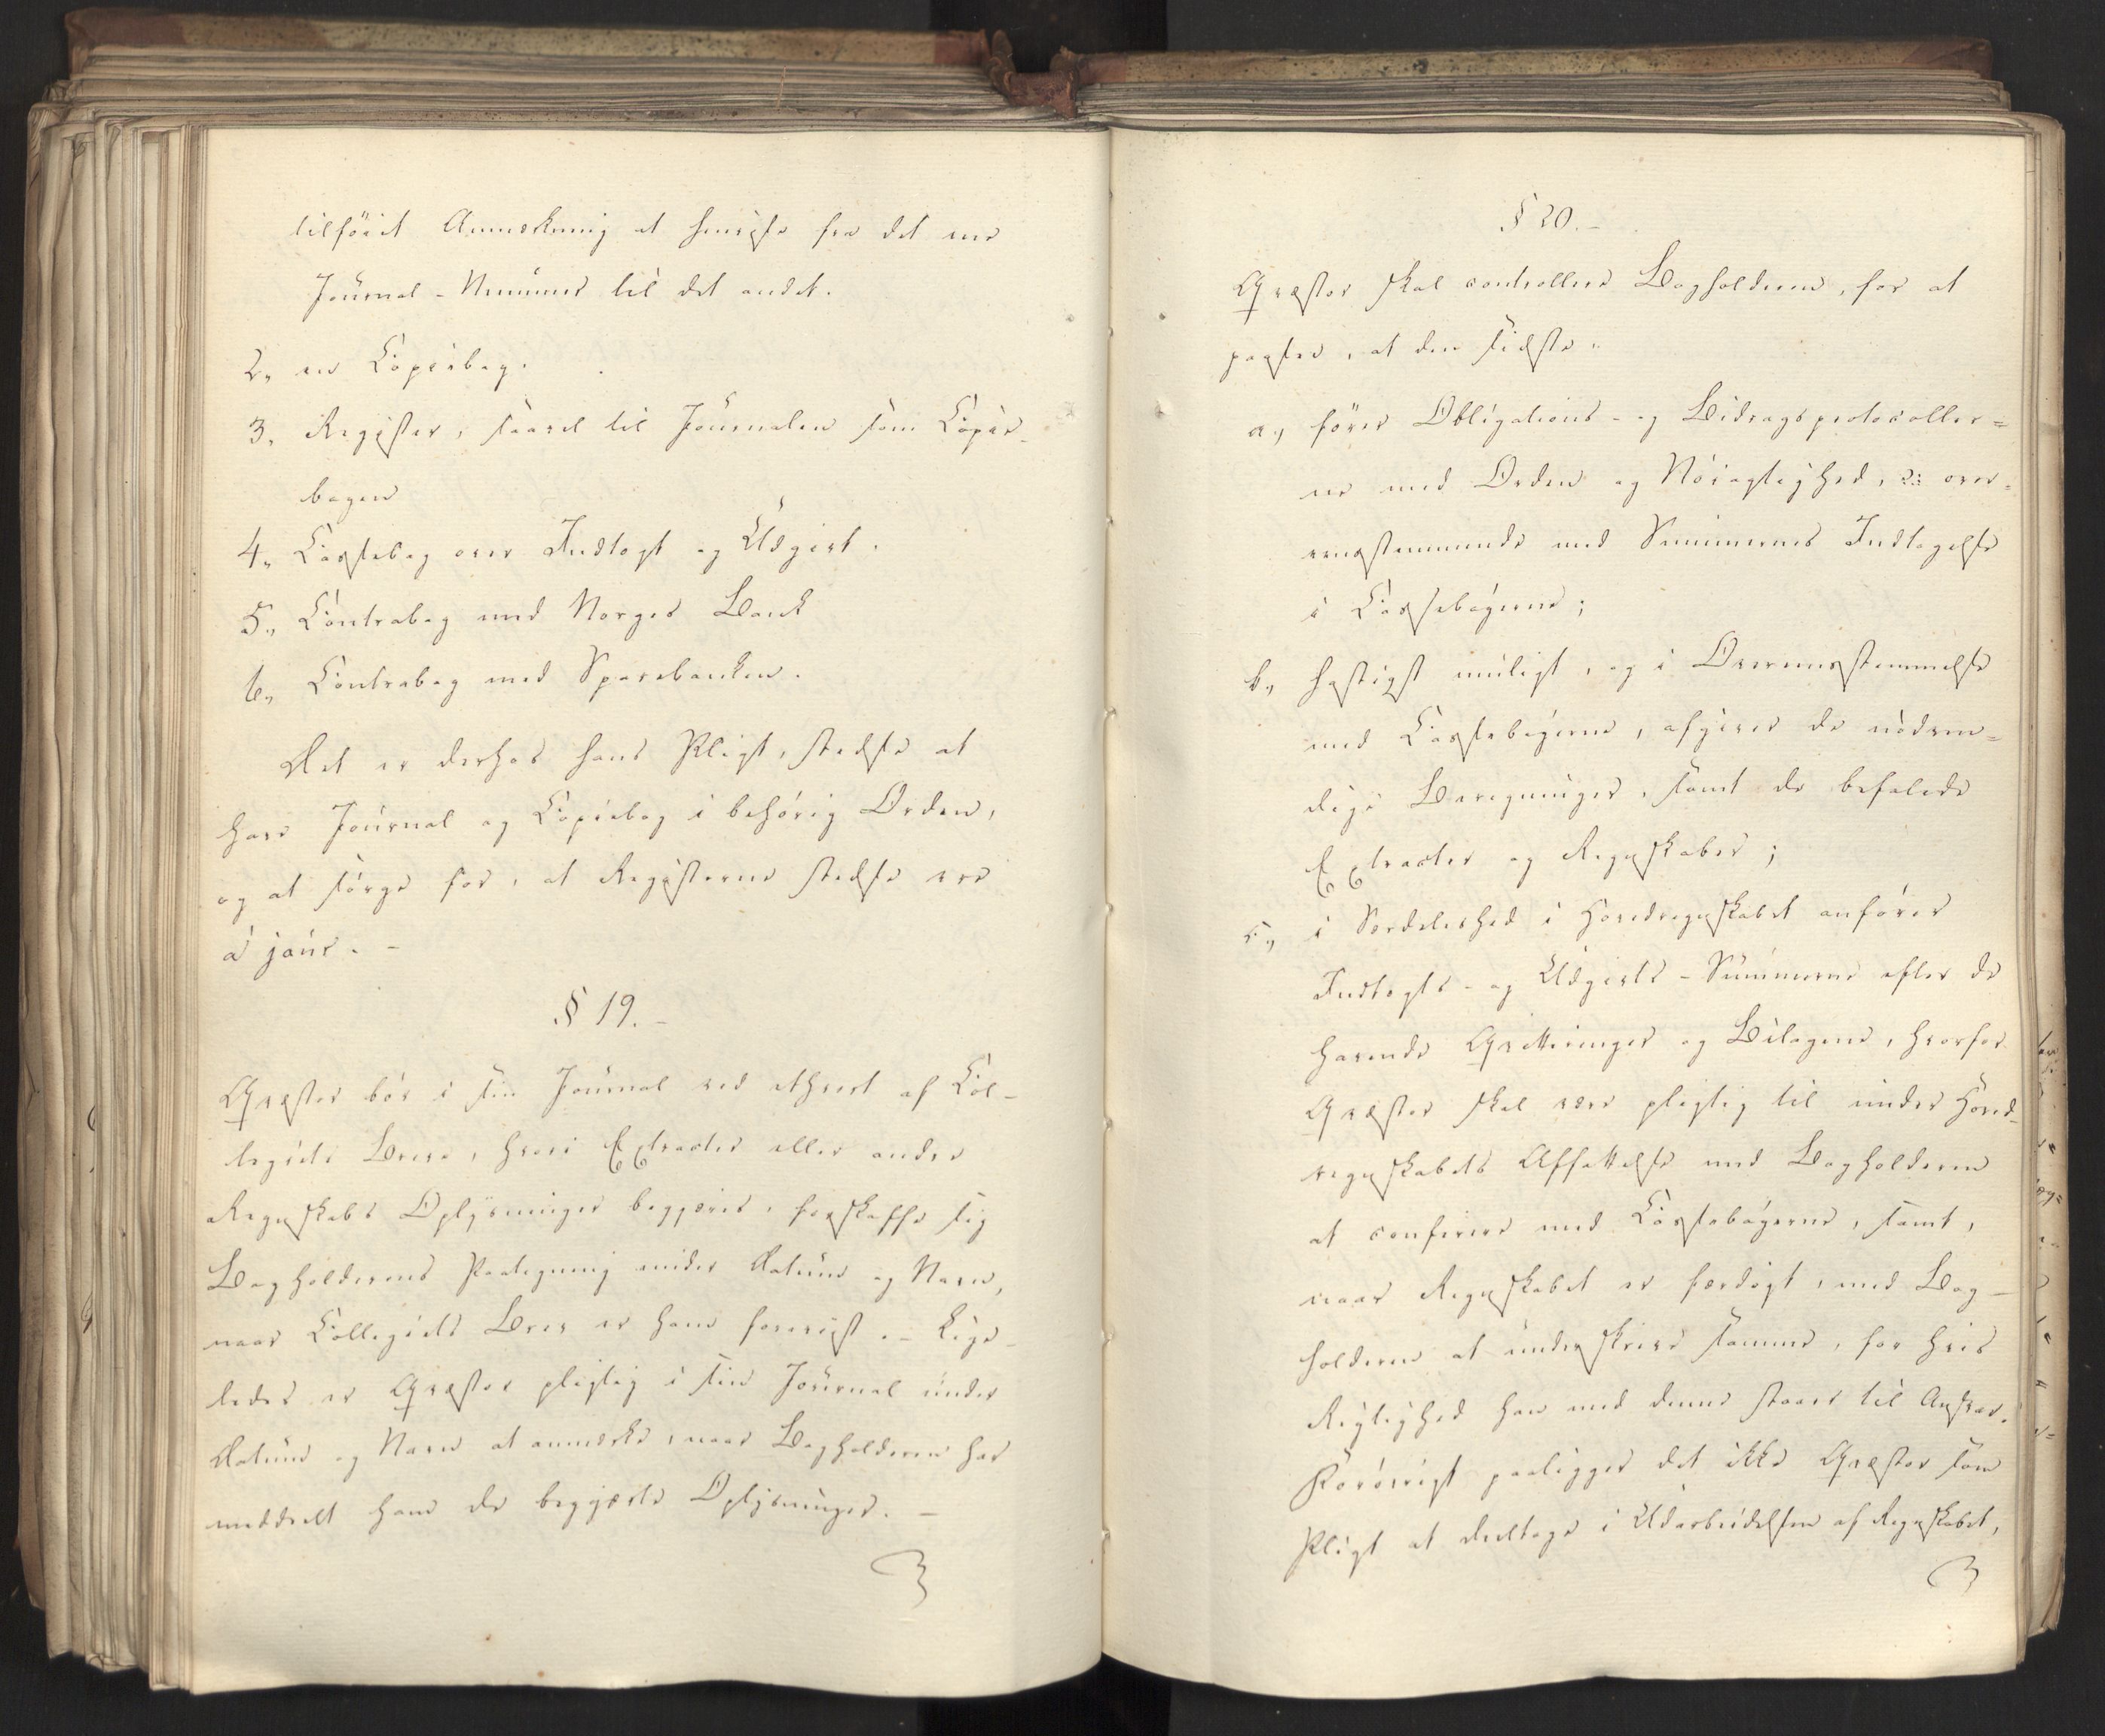 tilföiet Anmerkning at henvise fra det ene
Journal-Nummer til det andet.
2, en Copiebog.
3, Register, saavel til Journalen som Copie-
bogen
4, Cassebog over Indtægt og Udgivt.
5., Contrabog med Norges Bank
6., Contrabog med Sparebanken.
Det er derhos hans Pligt, stedse at
have Journal og Copiebog i behörig Orden,
og at sörge for, at Registerne stedse ere
à jour. -
§ 19. -
Qvæstor bör i sin Journal ved ethvert af Col-
legiets Breve, hvori Extracter eller andre
Regnskabs Oplysninger begjæres, forskaffe sig
Bogholderens Paategning under Datum og Navn,
naar Collegiets Brev er ham foreviist. - Lige-
ledes er Qvæstor pligtig i sin Journal under
Datum og Navn at anmærke, naar Bogholderen har
meddeelt ham de begjærte Oplysninger. -
§ 20. -
Qvæstor skal controllere Bogholderen, for at
paasee, at den sidste:
a., förer Obligations- og Bidragsprotocoller=
ne med Orden og Nöiagtighed, ɔ: over=
eensstemmende med Summernes Indtagelse
i Cassebögerne;
b., hastigst muligt, og i Overeensstemmelse
med Cassebögerne, afgiver de nödven=
dige Beregninger, samt de befalede
Extracter og Regnskaber;
c., i Særdeleshed i Hovedregnskabet anförer
Indtægts- og Udgivts-Summerne efter de
havende Qvitteringer og Bilagene, hvorfor
Qvæstor skal være pligtig til under Hoved-
regnskabets Affattelse med Bogholderen
at conferere med Cassebögerne, samt,
naar Regnskabet er færdigt, med Bog-
holderen at underskrive samme, for hvis
Rigtighed han med denne staaer til Ansvar.
Forövrigt paaligger det ikke Qvæstor som
Pligt at deeltage i Udarbeidelsen af Regnskabet,